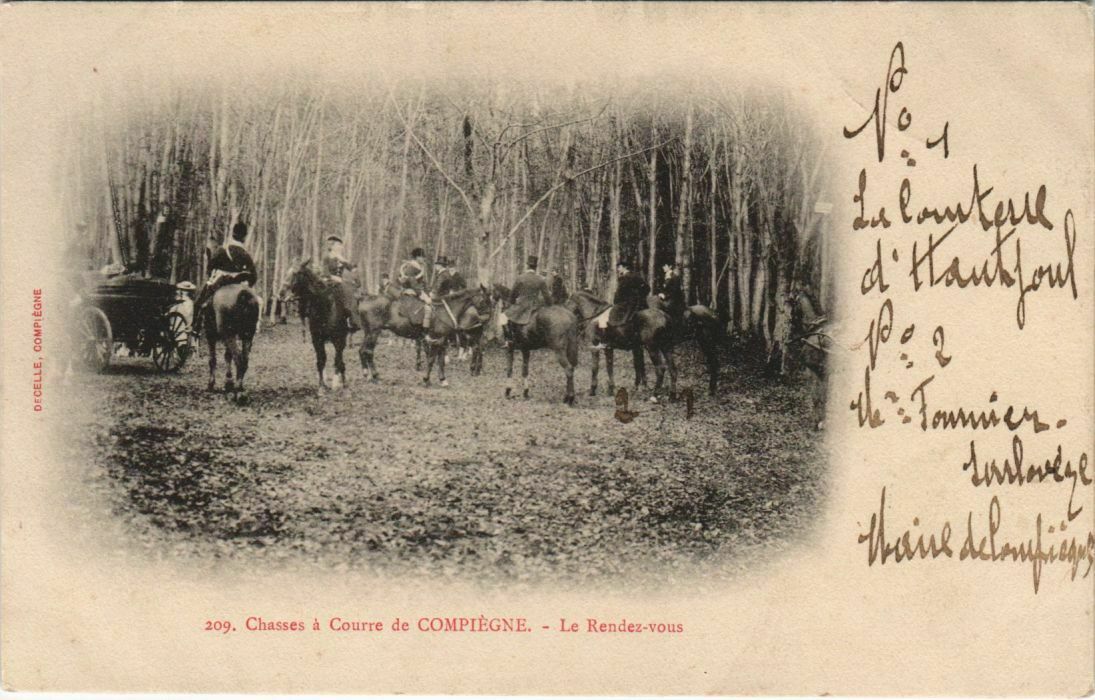 No 1
La Comtesse
d'Hautpoul
No 2
Mr Fournier-
Sarlovèze
Maire de Compiègne
2 1
DECELLE, COMPIÈGNE
209. Chasses à Courre de COMPIÈGNE. - Le Rendez-vous